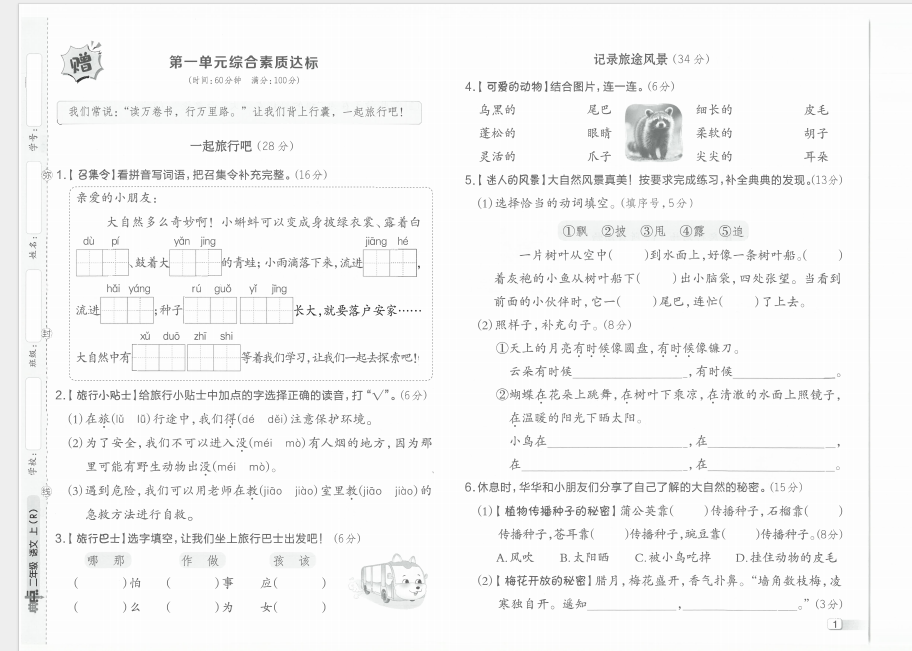 赠
学号：
姓名：
班级：
学校：
弥
封
线
点 二年级 语文 上（R）
第一单元综合素质达标
（时间：60分钟 满分：100分）
我们常说：“读万卷书，行万里路。”让我们背上行囊，一起旅行吧！
一起旅行吧（28分）
1.【召集令】看拼音写词语，把召集令补充完整。（16分）
亲爱的小朋友：
大自然多么奇妙啊！小蝌蚪可以变成身披绿衣裳、露着白
dù pí yǎn jing jiāng hé
、鼓着大 的青蛙；小雨滴落下来，流进 ，
hǎi yáng rú guǒ yǐ jīng
流进 ；种子 长大，就要落户安家……
xǔ duō zhī shi
大自然中有 等着我们学习，让我们一起去探索吧！
2.【旅行小贴士】给旅行小贴士中加点的字选择正确的读音，打“√”。（6分）
（1）在旅(lǔ lǚ)行途中，我们得(dé děi)注意保护环境。
（2）为了安全，我们不可以进入没(méi mò)有人烟的地方，因为那
里可能有野生动物出没(méi mò)。
（3）遇到危险，我们可以用老师在教(jiāo jiào)室里教(jiāo jiào)的
急救方法进行自救。
3.【旅行巴士】选字填空，让我们坐上旅行巴士出发吧！（6分）
哪 那 作 做 孩 该
（ ）怕 （ ）事 应（ ）
（ ）么 （ ）为 女（ ）
记录旅途风景（34分）
4.【可爱的动物】结合图片，连一连。（6分）
乌黑的 尾巴 细长的 皮毛
蓬松的 眼睛 柔软的 胡子
灵活的 爪子 尖尖的 耳朵
5.【迷人的风景】大自然风景真美！按要求完成练习，补全典典的发现。（13分）
（1）选择恰当的动词填空。（填序号，5分）
①飘 ②披 ③甩 ④露 ⑤追
一片树叶从空中（ ）到水面上，好像一条树叶船。（ ）
着灰袍的小鱼从树叶船下（ ）出小脑袋，四处张望。当看到
前面的小伙伴时，它一（ ）尾巴，连忙（ ）了上去。
（2）照样子，补充句子。（8分）
①天上的月亮有时候像圆盘，有时候像镰刀。
云朵有时候________________，有时候________________。
②蝴蝶在花朵上跳舞，在树叶下乘凉，在清澈的水面上照镜子，
在温暖的阳光下晒太阳。
小鸟在____________________，在____________________，
在____________________，在____________________。
6.休息时，华华和小朋友们分享了自己了解的大自然的秘密。（15分）
（1）【植物传播种子的秘密】蒲公英靠（ ）传播种子，石榴靠（ ）
传播种子，苍耳靠（ ）传播种子，豌豆靠（ ）传播种子。（8分）
A.风吹 B.太阳晒 C.被小鸟吃掉 D.挂住动物的皮毛
（2）【梅花开放的秘密】腊月，梅花盛开，香气扑鼻。“墙角数枝梅，凌
寒独自开。遥知________________，________________。”（3分）
1